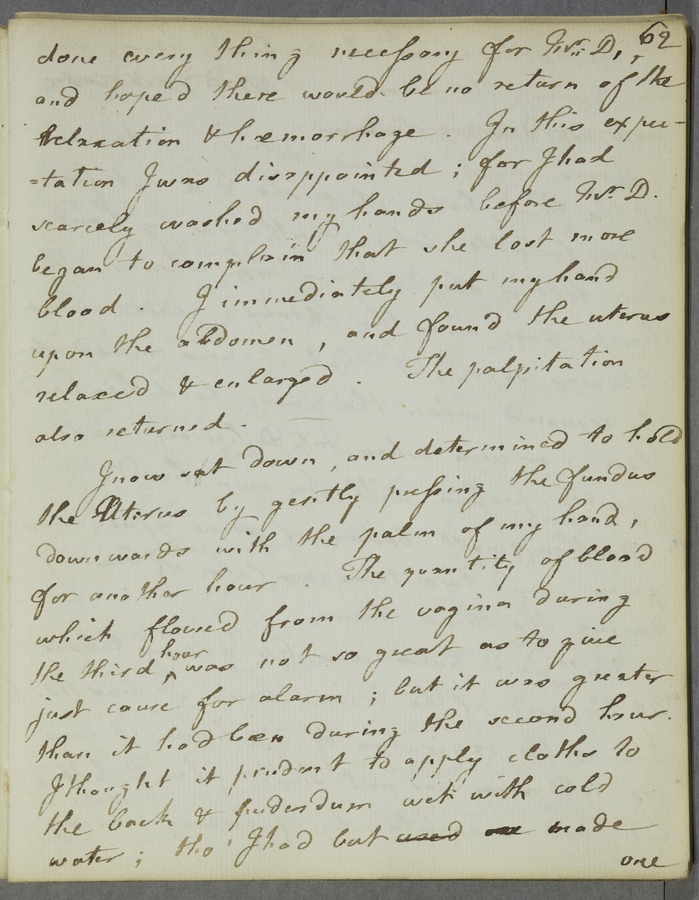 62
done every thing necessary for Mrs. D.,
and hoped there would be no return of the
Relaxation & hæmorrhage. In this expec-
=tation I was disappointed; for I had
scarcely washed my hands before Mrs. D.
began to complain that she lost more
blood. I immediately put my hand
upon the abdomen, and found the uterus
relaxed & enlarged. The palpitation
also returned. —
I now sat down, and determined to hold
the Uterus by gently pressing the fundus
downwards with the palm of my hand,
for another hour. The quantity of blood
which flowed from the vagina during
the third hour was not so great as to give
just cause for alarm; but it was greater
than it had been during the second hour.
I thought it prudent to apply cloths to
the back & pudendum wet with cold
water; tho' I had but used one made
one